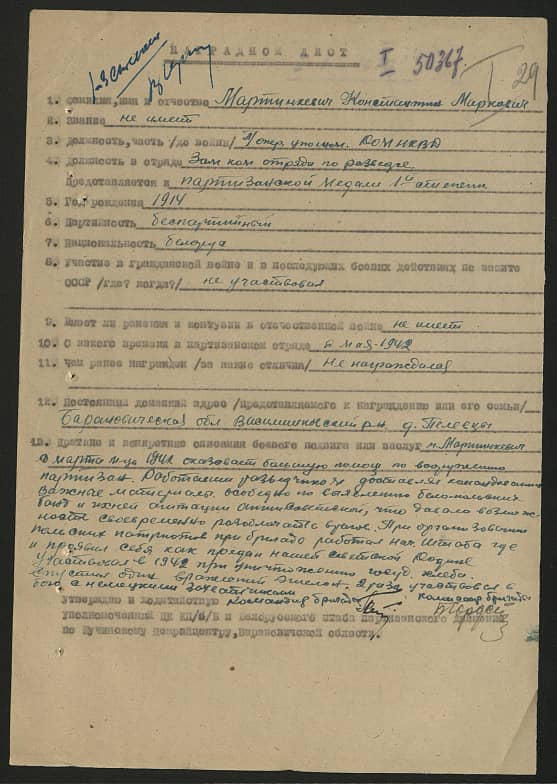 НАГРАДНОЙ ЛИСТ
I 50367
29
1. Фамилия, имя и отчество Мартинкевич Константин Маркович
2. Звание не имеет
3. Должность, часть /до войны/ Опер. уполном. НКВД
4. Должность в отряде Зам ком отряда по разведке
Представляется к партизанской медали 1й степени
5. Год рождения 1914
6. Партийность беспартийный
7. Национальность белорус
8. Участие в гражданской войне и в последующих боевых действиях по защите
СССР /где? когда?/ не участвовал
9. Имеет ли ранения и контузии в отечественной войне не имеет
10. С какого времени в партизанском отряде 6 мая 1942
11. Чем ранее награжден /за какие отличия/ Не награждался
12. Постоянный домашний адрес /представляемого к награждению или его семьи/
Барановическая обл Василишковский р-н, д. Пелевцы
13. Краткое и конкретное описание боевого подвига или заслуг т. Мартинкевич
с марта м-ца 1942 оказывает большую помощь по вооружению
партизан. Работая в разведке доставлял командованию
важные материалы особенно по выявлению белопольских
банд и их агитации антисоветской, что давало возмож-
ность своевременно разоблачать врагов. При организовании
польских патриотов при бригаде работал нач. Штаба где
и проявил себя как предан нашей советской Родине
Участвовал в 1942 при уничтожению госуд. хлеба.
спустил один вражеский эшелон. 2 раза участвовал в
бою с немецкими захватчиками
Командир бригады
Утверждаю и ходатайствую
уполномоченный ЦК КП/б/Б и Белорусского штаба партизанского движения
по Щучинскому межрайцентру, Барановичской области.